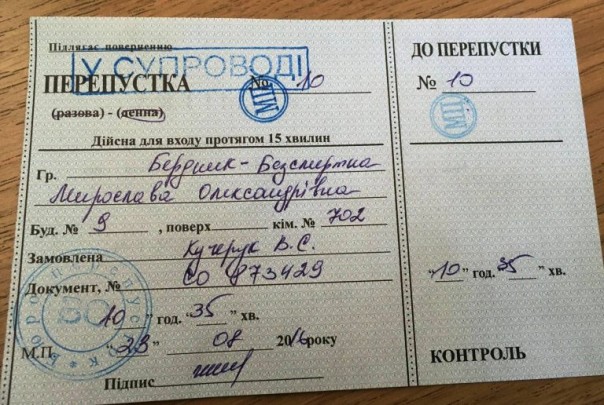 Підлягає поверненню
У СУПРОВОДІ
ПЕРЕПУСТКА № 10
МП
(разова) - (денна)
Дійсна для входу протягом 15 хвилин
Гр. Бердник-Безсмертна
Мирослава Олександрівна
Буд. № 9 , поверх кім. № 702
Замовлена Кучерук В.С.
Документ, № СО 873429
Бюро перепусток
80
10 " год. "35 " хв.
М.П. "23 08 2016року
Підпис
ДО ПЕРЕПУСТКИ
№ 10
МП
"10 " год. 35 " хв.
КОНТРОЛЬ